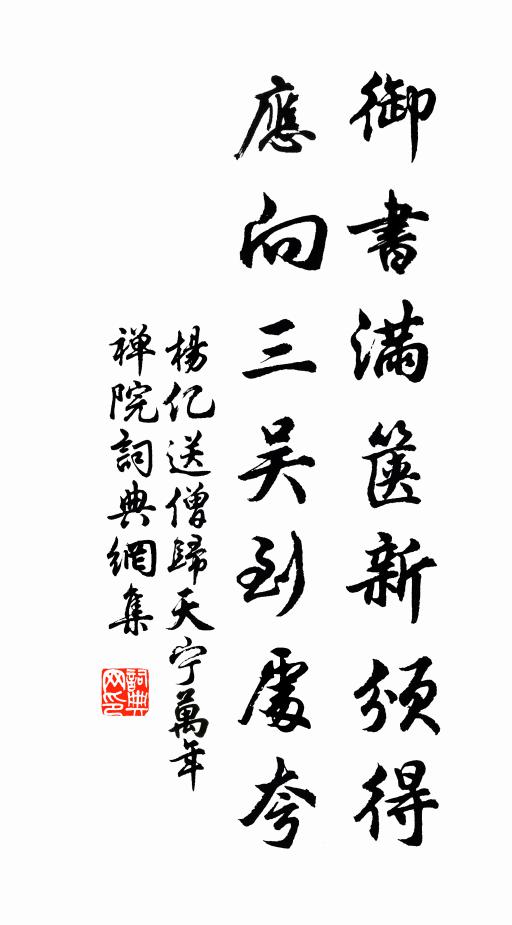 御書滿篋新頒得
應向三吴到處夸
楊亿送僧歸天宁萬年
禅院詞典網集
詞典网印